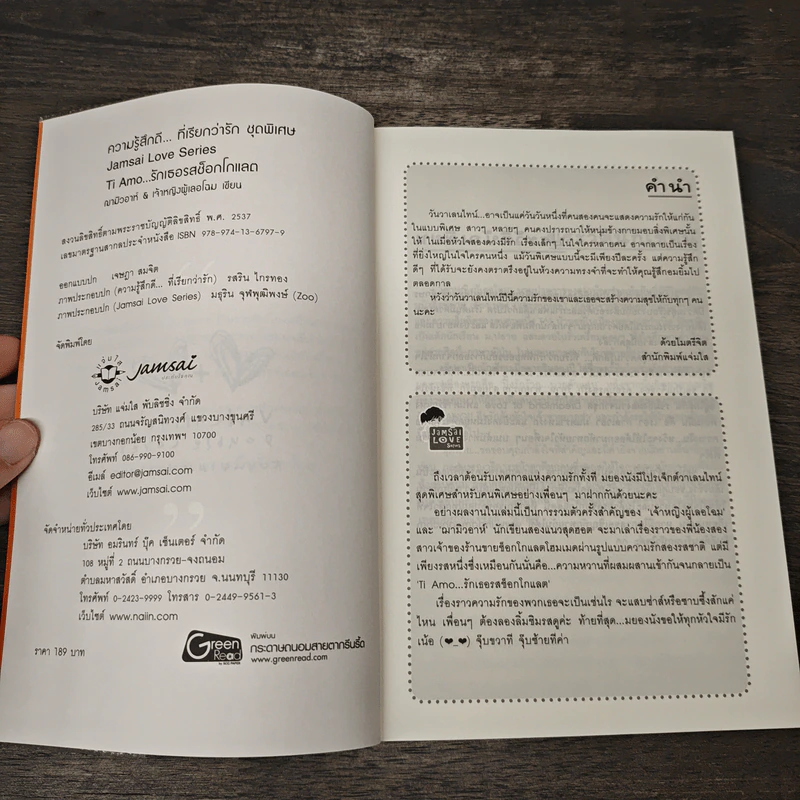 ความรู้สึกดี... ที่เรียกว่ารัก ชุดพิเศษ
Jamsai Love Series
Ti Amo...รักเธอรสช็อกโกแลต
ฌามิวอาห์ & เจ้าหญิงผู้เลอโฉม เขียน
สงวนลิขสิทธิ์ตามพระราชบัญญัติลิขสิทธิ์ พ.ศ. 2537
เลขมาตรฐานสากลประจำหนังสือ ISBN 978-974-13-6797-9
ออกแบบปก เจษฎา สมจิต
ภาพประกอบปก (ความรู้สึกดี... ที่เรียกว่ารัก) รสริน ไกรทอง
ภาพประกอบปก (Jamsai Love Series) มธุริน จุฬพุฒิพงษ์ (Zoo)
จัดพิมพ์โดย
แจ่มใส Jamsai
Jamsai
บริษัท แจ่มใส พับลิชชิ่ง จำกัด
285/33 ถนนจรัญสนิทวงศ์ แขวงบางขุนศรี
เขตบางกอกน้อย กรุงเทพฯ 10700
โทรศัพท์ 086-990-9100
อีเมล์ editor@jamsai.com
เว็บไซต์ www.jamsai.com
จัดจำหน่ายทั่วประเทศโดย
บริษัท อมรินทร์ บุ๊ค เซ็นเตอร์ จำกัด
108 หมู่ที่ 2 ถนนบางกรวย-จงถนอม
ตำบลมหาสวัสดิ์ อำเภอบางกรวย จ.นนทบุรี 11130
โทรศัพท์ 0-2423-9999 โทรสาร 0-2449-9561-3
เว็บไซต์ www.naiin.com
ราคา 189 บาท
Green Read
พิมพ์บน
กระดาษถนอมสายตากรีนรี้ด
www.greenread.com
คำนำ
วันวาเลนไทน์...อาจเป็นแค่วันวันหนึ่งที่คนสองคนจะแสดงความรักให้แก่กัน
ในแบบพิเศษ สาวๆ หลายๆ คนคงปรารถนาให้หนุ่มข้างกายมอบสิ่งพิเศษนั้น
ให้ ในเมื่อหัวใจสองดวงมีรัก เรื่องเล็กๆ ในใจใครหลายคน อาจกลายเป็นเรื่อง
ที่ยิ่งใหญ่ในใจใครคนหนึ่ง แม้วันพิเศษแบบนี้จะมีเพียงปีละครั้ง แต่ความรู้สึก
ดีๆ ที่ได้รับจะยังคงตราตรึงอยู่ในห้วงความทรงจำที่จะทำให้คุณรู้สึกอมยิ้มไป
ตลอดกาล
หวังว่าวันวาเลนไทน์ปีนี้ความรักของเขาและเธอจะสร้างความสุขให้กับทุกๆ คน
นะคะ
ด้วยไมตรีจิต
สำนักพิมพ์แจ่มใส
JAMSAI
LOVE
Series
ถึงเวลาต้อนรับเทศกาลแห่งความรักทั้งที มยองนังมีโปรเจ็กต์วาเลนไทน์
สุดพิเศษสำหรับคนพิเศษอย่างเพื่อนๆ มาฝากกันด้วยนะคะ
อย่างผลงานในเล่มนี้เป็นการรวมตัวครั้งสำคัญของ 'เจ้าหญิงผู้เลอโฉม'
และ 'ฌามิวอาห์' นักเขียนสองแนวสุดฮอต จะมาเล่าเรื่องราวของพี่น้องสอง
สาวเจ้าของร้านขายช็อกโกแลตโฮมเมดผ่านรูปแบบความรักสองรสชาติ แต่มี
เพียงรสหนึ่งซึ่งเหมือนกันนั่นคือ...ความหวานที่ผสมผสานเข้ากันจนกลายเป็น
'Ti Amo...รักเธอรสช็อกโกแลต'
เรื่องราวความรักของพวกเธอจะเป็นเช่นไร จะแสบซ่าส์หรือซาบซึ้งสักแค่
ไหน เพื่อนๆ ต้องลองลิ้มชิมรสดูค่ะ ท้ายที่สุด...มยองนังขอให้ทุกหัวใจมีรัก
เน้อ (❤_❤) จุ๊บขวาที จุ๊บซ้ายทีค่า